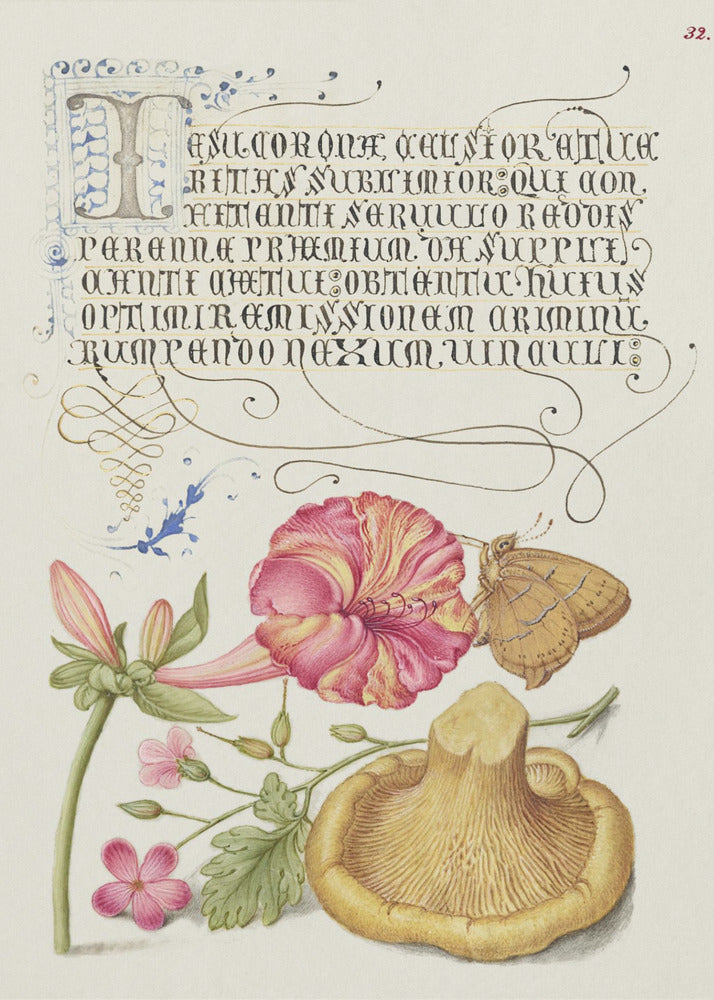 32.
IESU CORONA CELSIOR ET UE
RITAS SUBLIMIOR: QUI CON
FITENTI SERUULO REDDIS
PERENNE PRÆMIUM. DA SUPPLI
CANTI CŒTUI: OBTENTU HUIUS
OPTIMI REMISSIONEM CRIMINŪ
RUMPENDO NEXUM UINCULI: